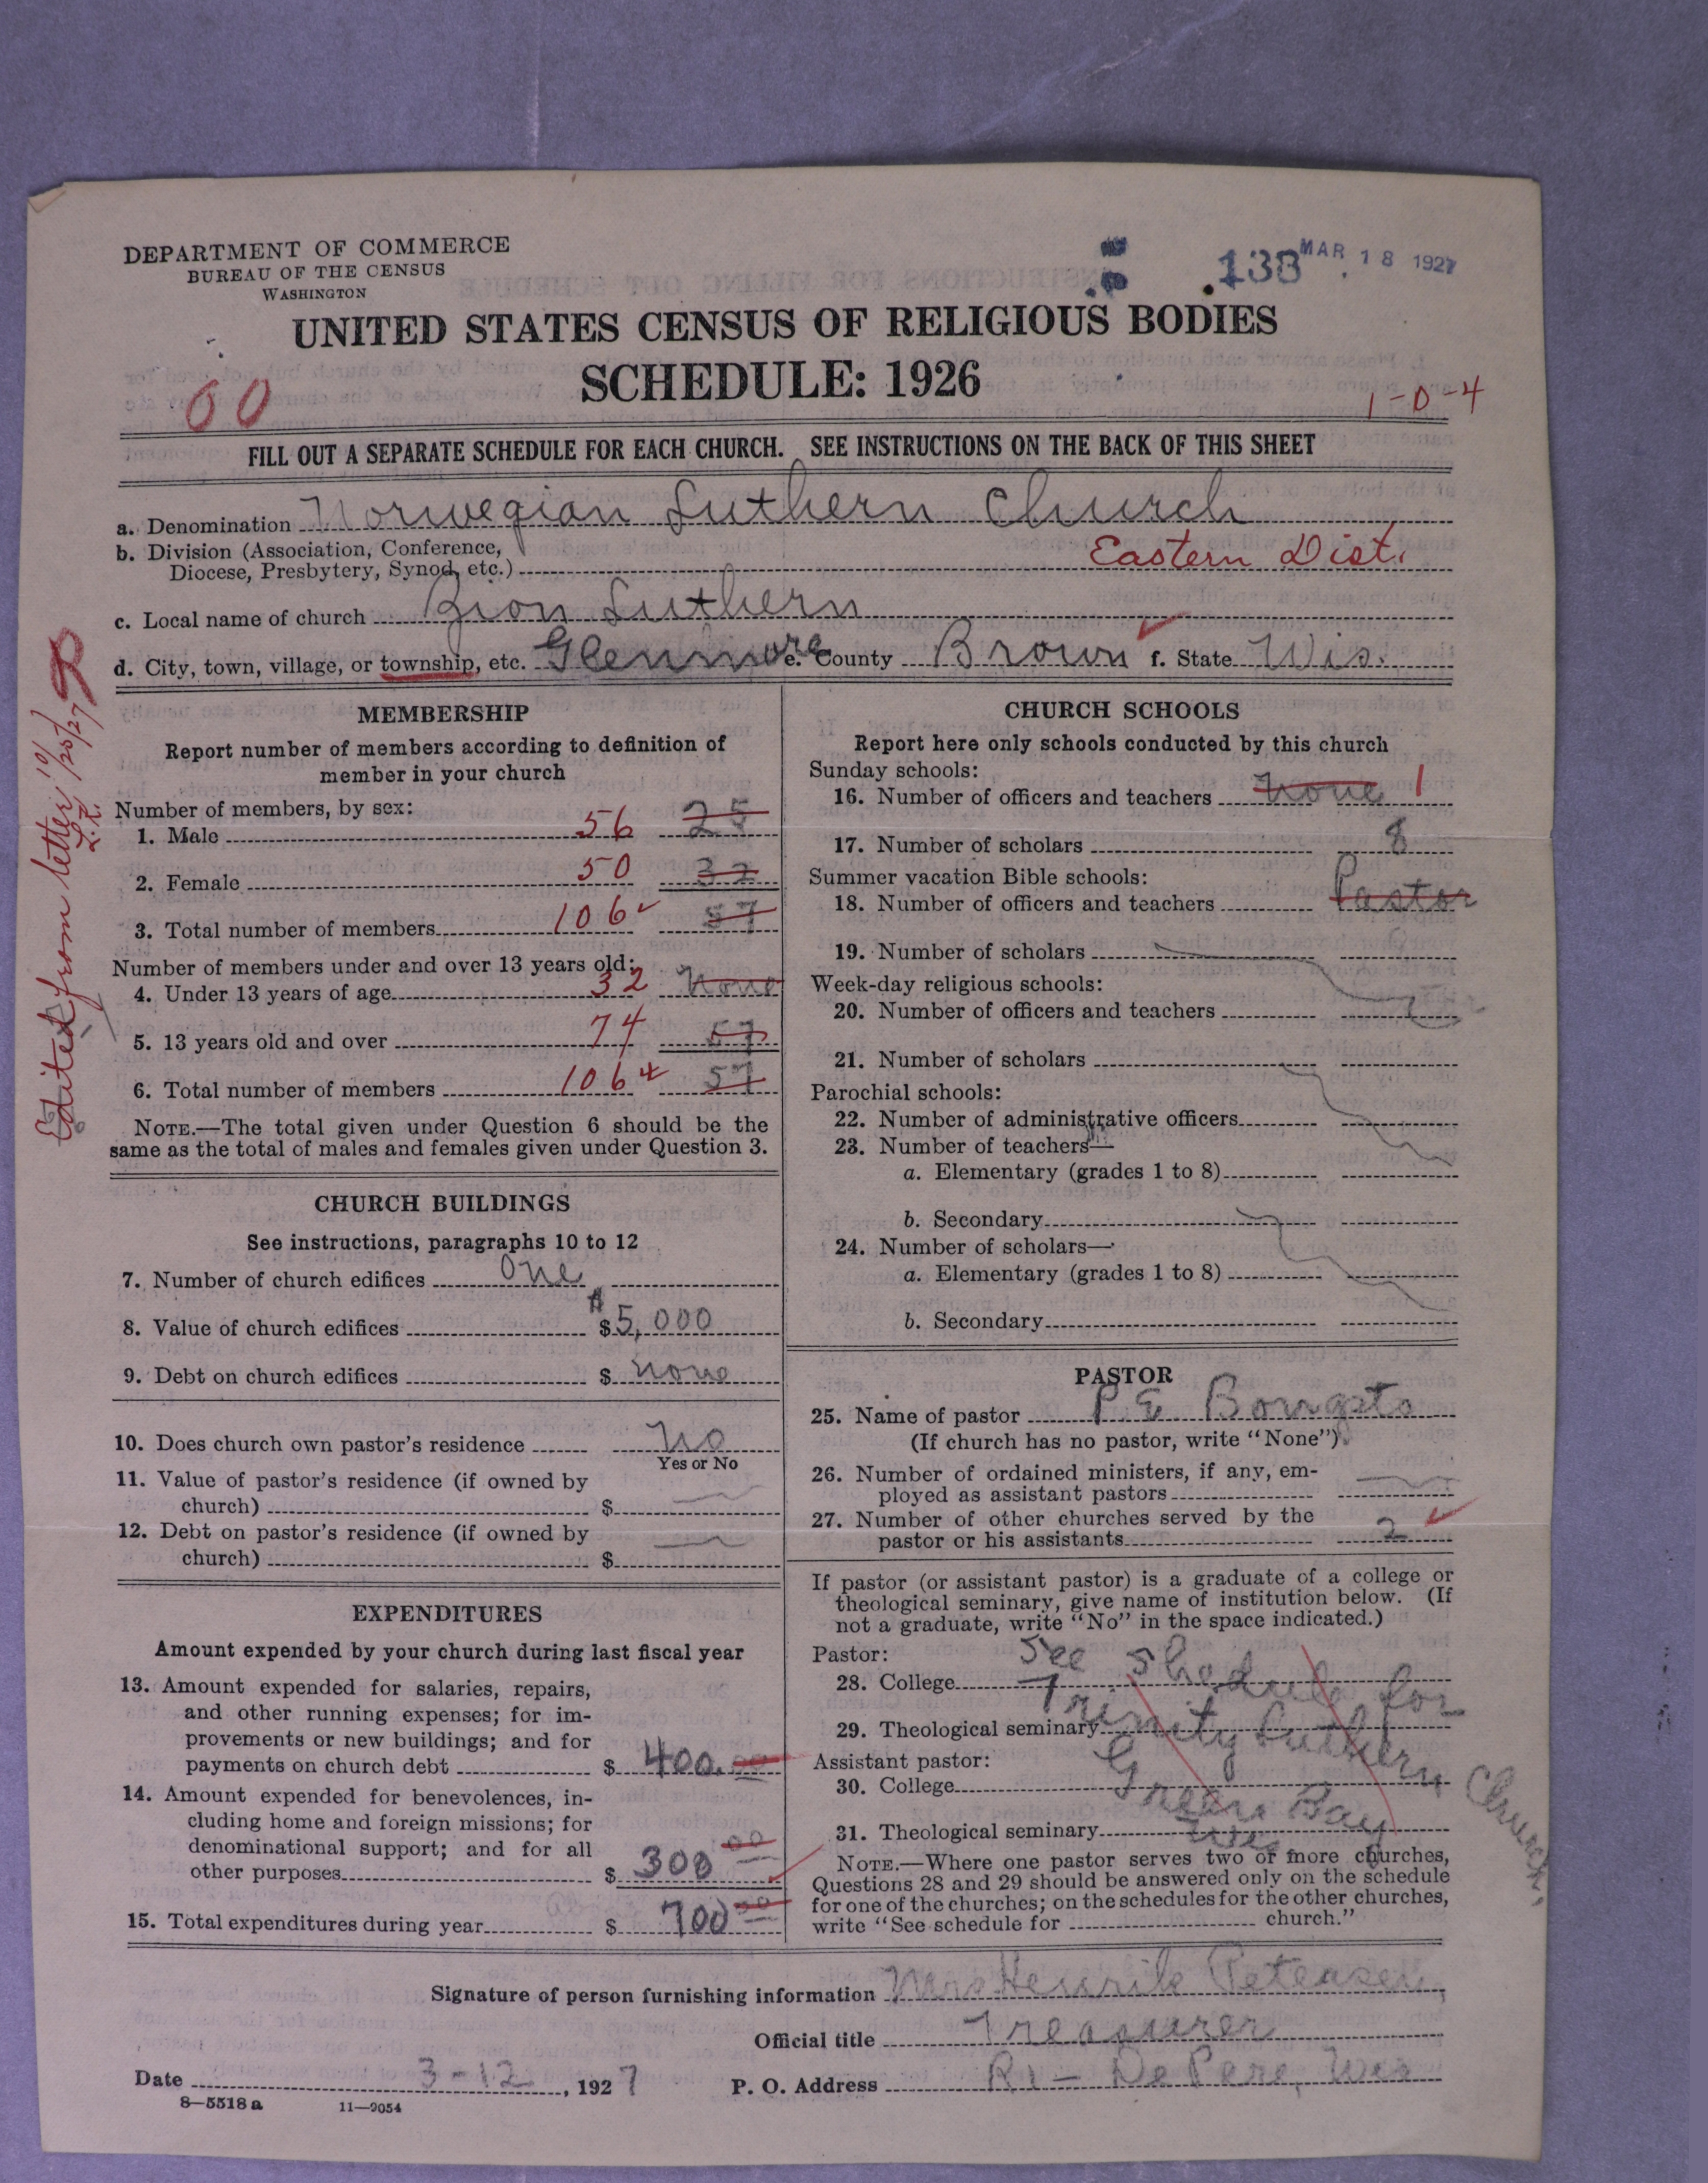 DEPARTMENT OF COMMERCE
BUREAU OF THE CENSUS
WASHINGTON
138 MAR 18 1927
UNITED STATES CENSUS OF RELIGIOUS BODIES
SCHEDULE: 1926
00
1-0-4
FILL OUT A SEPARATE SCHEDULE FOR EACH CHURCH. SEE INSTRUCTIONS ON THE BACK OF THIS SHEET
a. Denomination Norwegian Luthern Church
b. Division (Association, Conference,
Diocese, Presbytery, Synod, etc.) Eastern Dist.
c. Local name of church Zion Luthern
d. City, town, village, or township, etc. Glenmore e. County Brown f. State Wis.
Edited from letter 10/20/27
MEMBERSHIP
Report number of members according to definition of
member in your church
Number of members, by sex:
1. Male 56 25
2. Female 50 32
3. Total number of members 106 57
Number of members under and over 13 years old:
4. Under 13 years of age 32 None
5. 13 years old and over 74 57
6. Total number of members 106 57
NOTE.—The total given under Question 6 should be the
same as the total of males and females given under Question 3.
CHURCH BUILDINGS
See instructions, paragraphs 10 to 12
7. Number of church edifices One
8. Value of church edifices $5,000
9. Debt on church edifices $ none
10. Does church own pastor's residence No
Yes or No
11. Value of pastor's residence (if owned by
church) $
12. Debt on pastor's residence (if owned by
church) $
EXPENDITURES
Amount expended by your church during last fiscal year
13. Amount expended for salaries, repairs,
and other running expenses; for im-
provements or new buildings; and for
payments on church debt $ 400.00
14. Amount expended for benevolences, in-
cluding home and foreign missions; for
denominational support; and for all
other purposes $ 300 00
15. Total expenditures during year $ 700 00
CHURCH SCHOOLS
Report here only schools conducted by this church
Sunday schools:
16. Number of officers and teachers None 1
17. Number of scholars 8
Summer vacation Bible schools:
18. Number of officers and teachers Pastor
19. Number of scholars
Week-day religious schools:
20. Number of officers and teachers
21. Number of scholars
Parochial schools:
22. Number of administrative officers
23. Number of teachers—
a. Elementary (grades 1 to 8)
b. Secondary
24. Number of scholars—
a. Elementary (grades 1 to 8)
b. Secondary
PASTOR
25. Name of pastor P E
(If church has no pastor, write "None")
26. Number of ordained ministers, if any, em-
ployed as assistant pastors
27. Number of other churches served by the
pastor or his assistants 2
If pastor (or assistant pastor) is a graduate of a college or
theological seminary, give name of institution below. (If
not a graduate, write "No" in the space indicated.)
Pastor:
28. College See Shedule for
29. Theological seminary Trinity Luthern Church,
Assistant pastor:
30. College Green Bay
31. Theological seminary Wis
NOTE.—Where one pastor serves two or more churches,
Questions 28 and 29 should be answered only on the schedule
for one of the churches; on the schedules for the other churches,
write "See schedule for church."
Signature of person furnishing information Mrs Henrik Petersen,
Official title Treasurer
Date 3-12, 1927 P. O. Address R1 - De Pere, Wis
8—5518a 11—9054